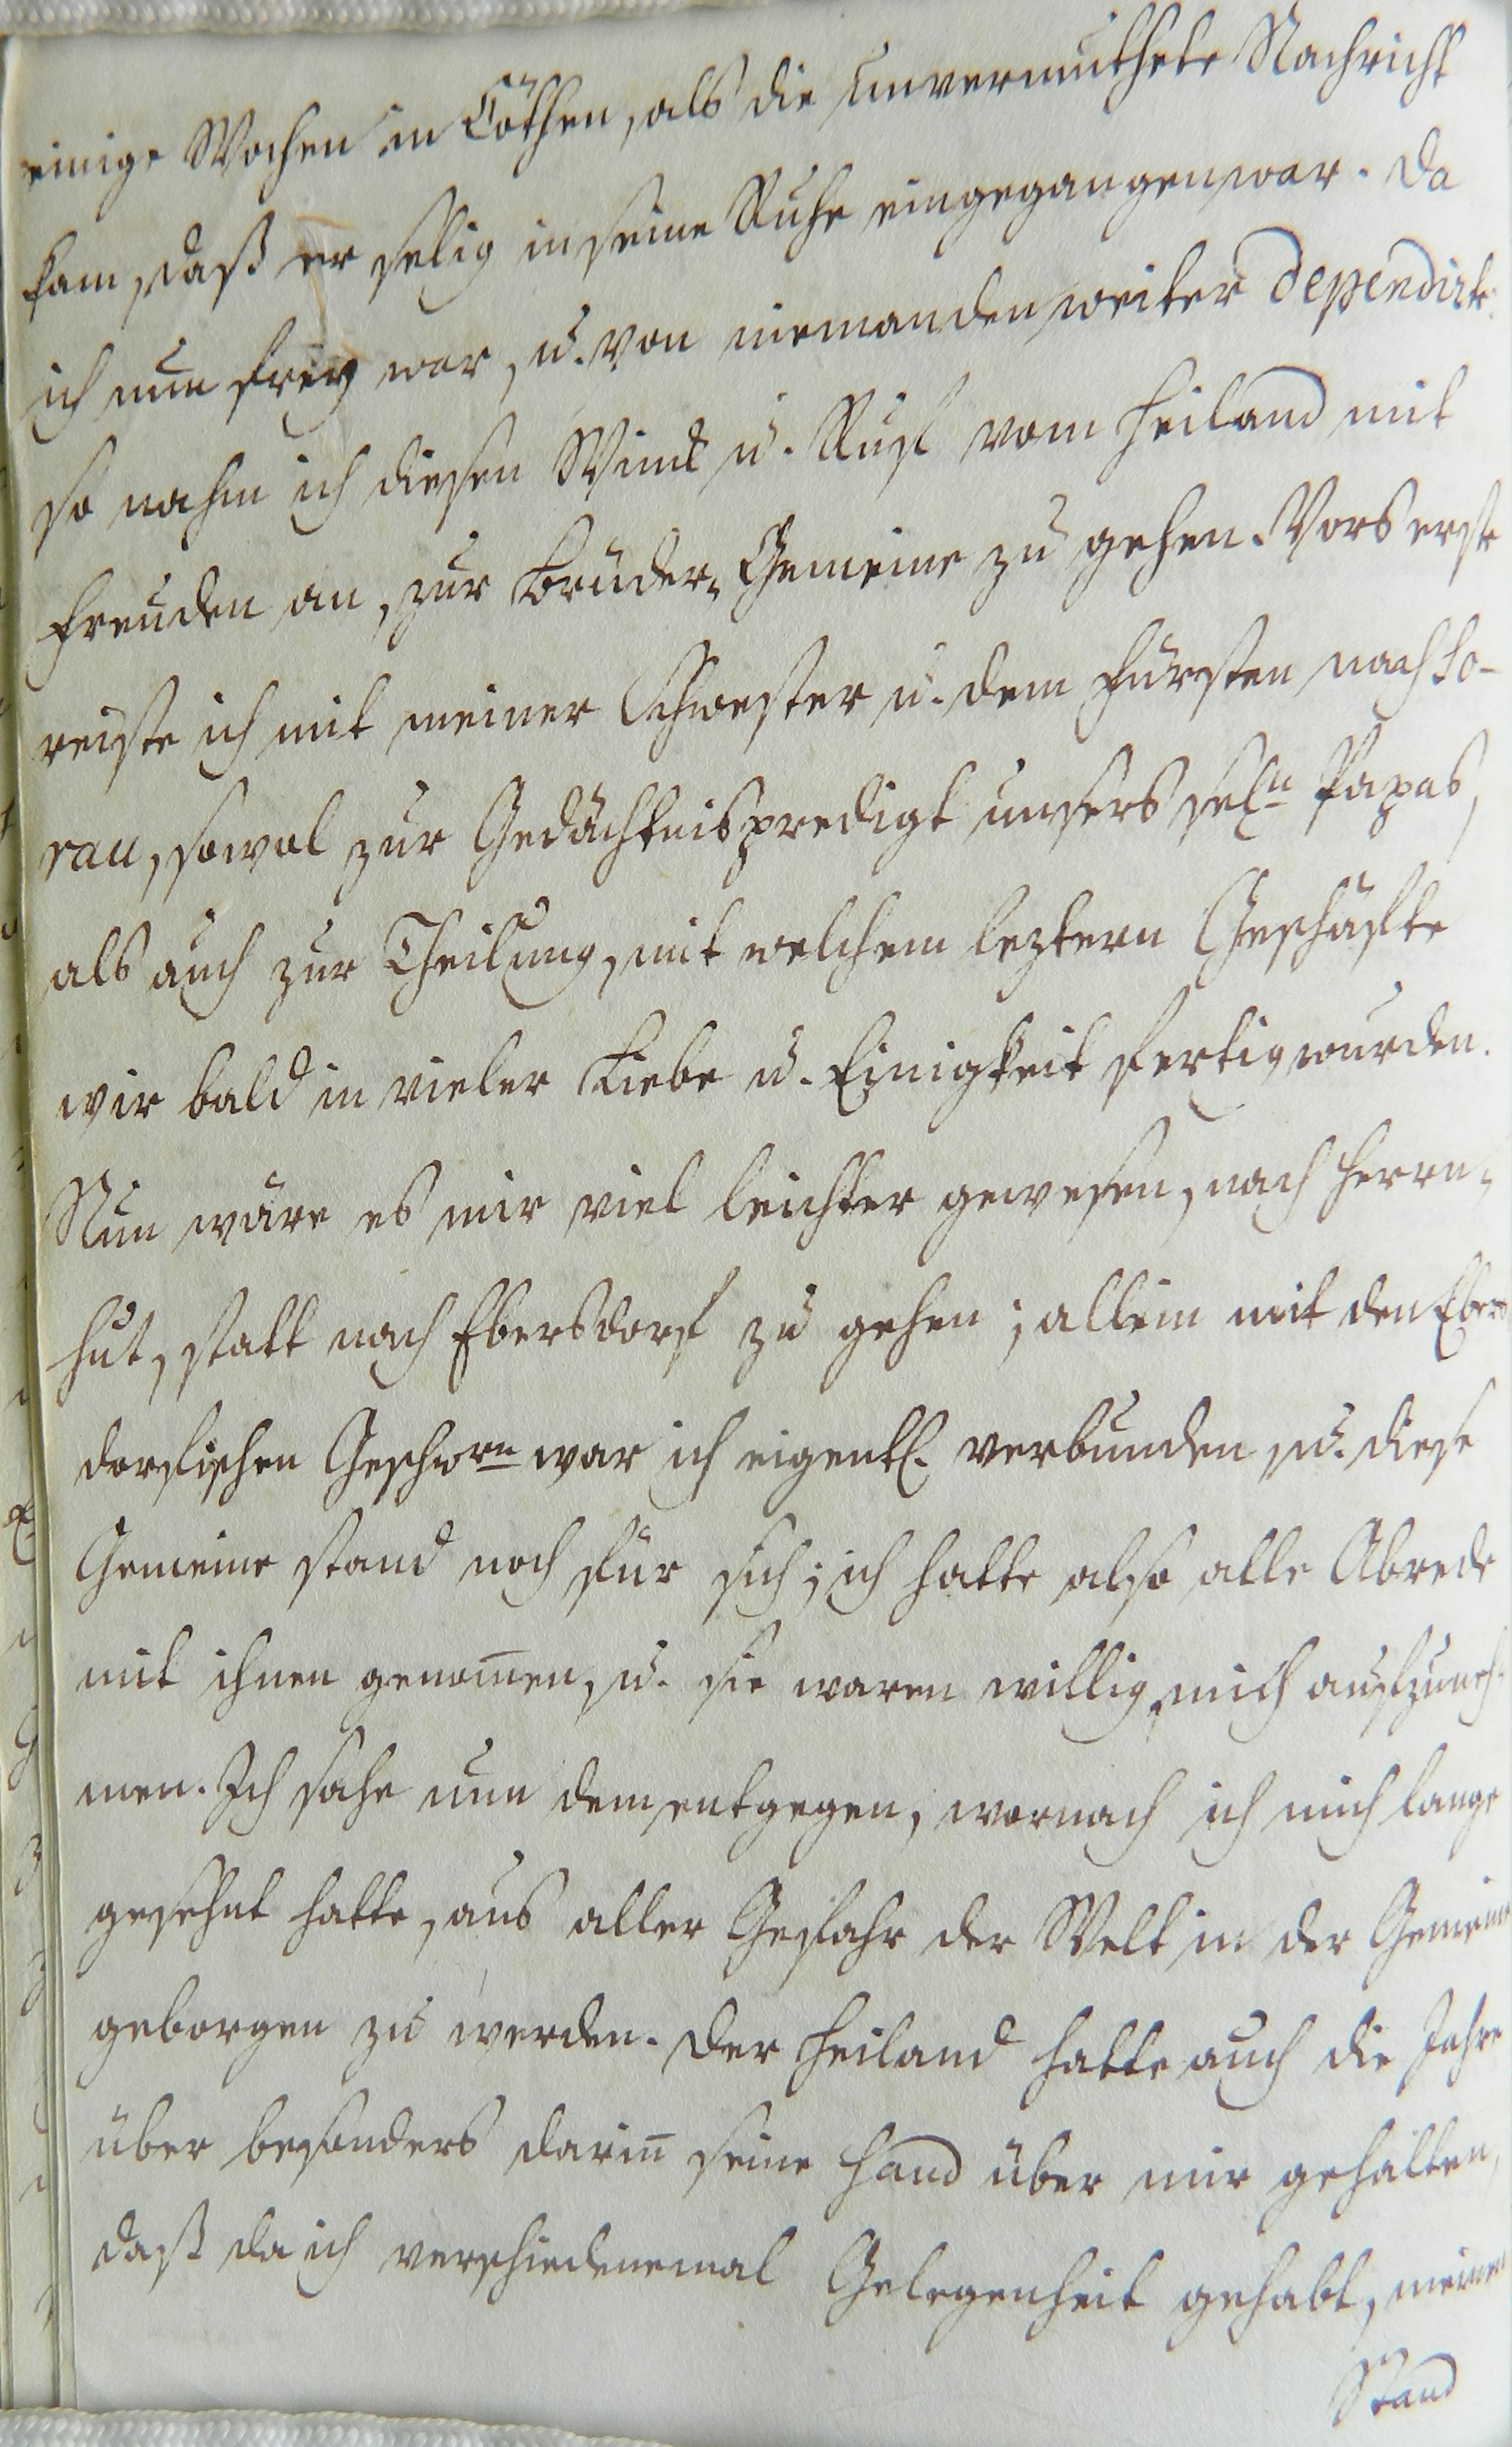 einige Wochen in Cöthen, als die unvermuthete Nachricht
kam, daß er selig in seine Ruhe eingegangen war. Da
ich nun frey war, u. von niemanden weiter dependirte,
so nahm ich diesen Wink u. Ruf vom Heiland mit
Freuden an, zur Brüder-Gemeine zu gehen. Vors erste
reiste ich mit meiner Schwester u. dem Fürsten nach So-
rau, sowol zur Gedächtnispredigt unsers seln Papas,
als auch zur Theilung, mit welchem leztern Geschäfte
wir bald in vieler Liebe u. Einigkeit fertig wurden.
Nun wäre es mir viel leichter gewesen, nach Herrn-
hut, statt nach Ebersdorf zu gehen; allein mit den Ebers
dorfischen Geschwrn war ich eigentl. verbunden, u. diese
Gemeine stand noch für sich; ich hatte also alle Abrede
mit ihnen genom̅en, u. sie waren willig, mich aufzuneh-
men. Ich sahe nun dem entgegen, wornach ich mich lange
gesehnt hatte, aus aller Gefahr der Welt in der Gemeine
geborgen zu werden. Der Heiland hatte auch die Jahre
über besonders darin̅ seine Hand über mir gehalten,
daß da ich verschiedenemal Gelegenheit gehabt, meinen
Stand